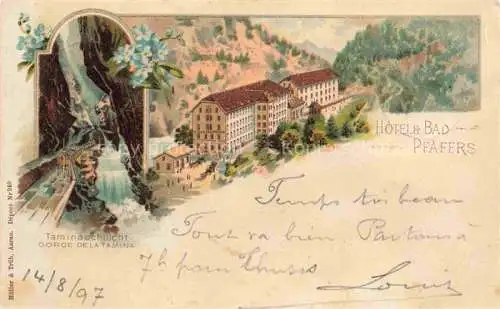 HÔTEL & BAD
PFÄFERS
Taminaschlucht
GORGE DE LA TAMINA
Müller & Trüb, Aarau. Dépose Nr 240
14/8/97
Temps très beau
Tout va bien Partons à
7h pour Thusis
Louis